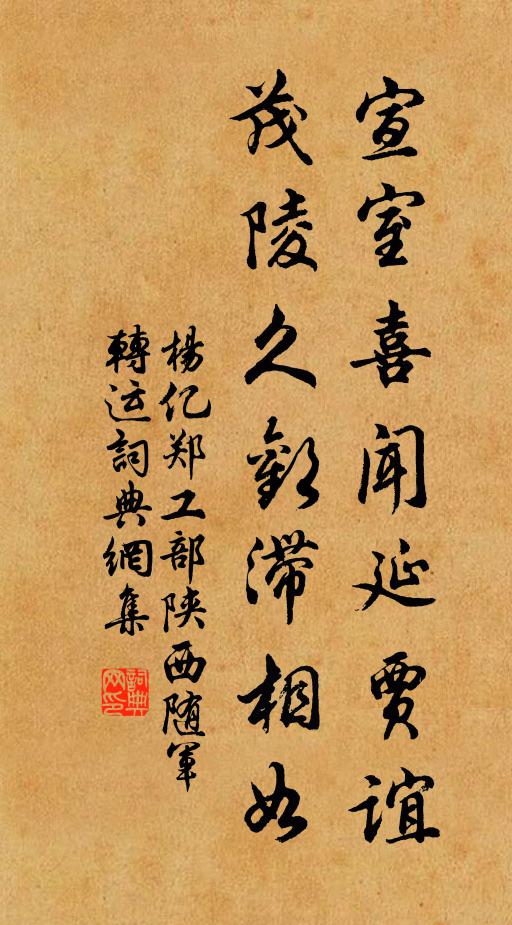 宣室喜闻延贾谊
茂陵久歎滞相如
楊亿郑工部陕西随军
轉运詞典網集
詞典
网印